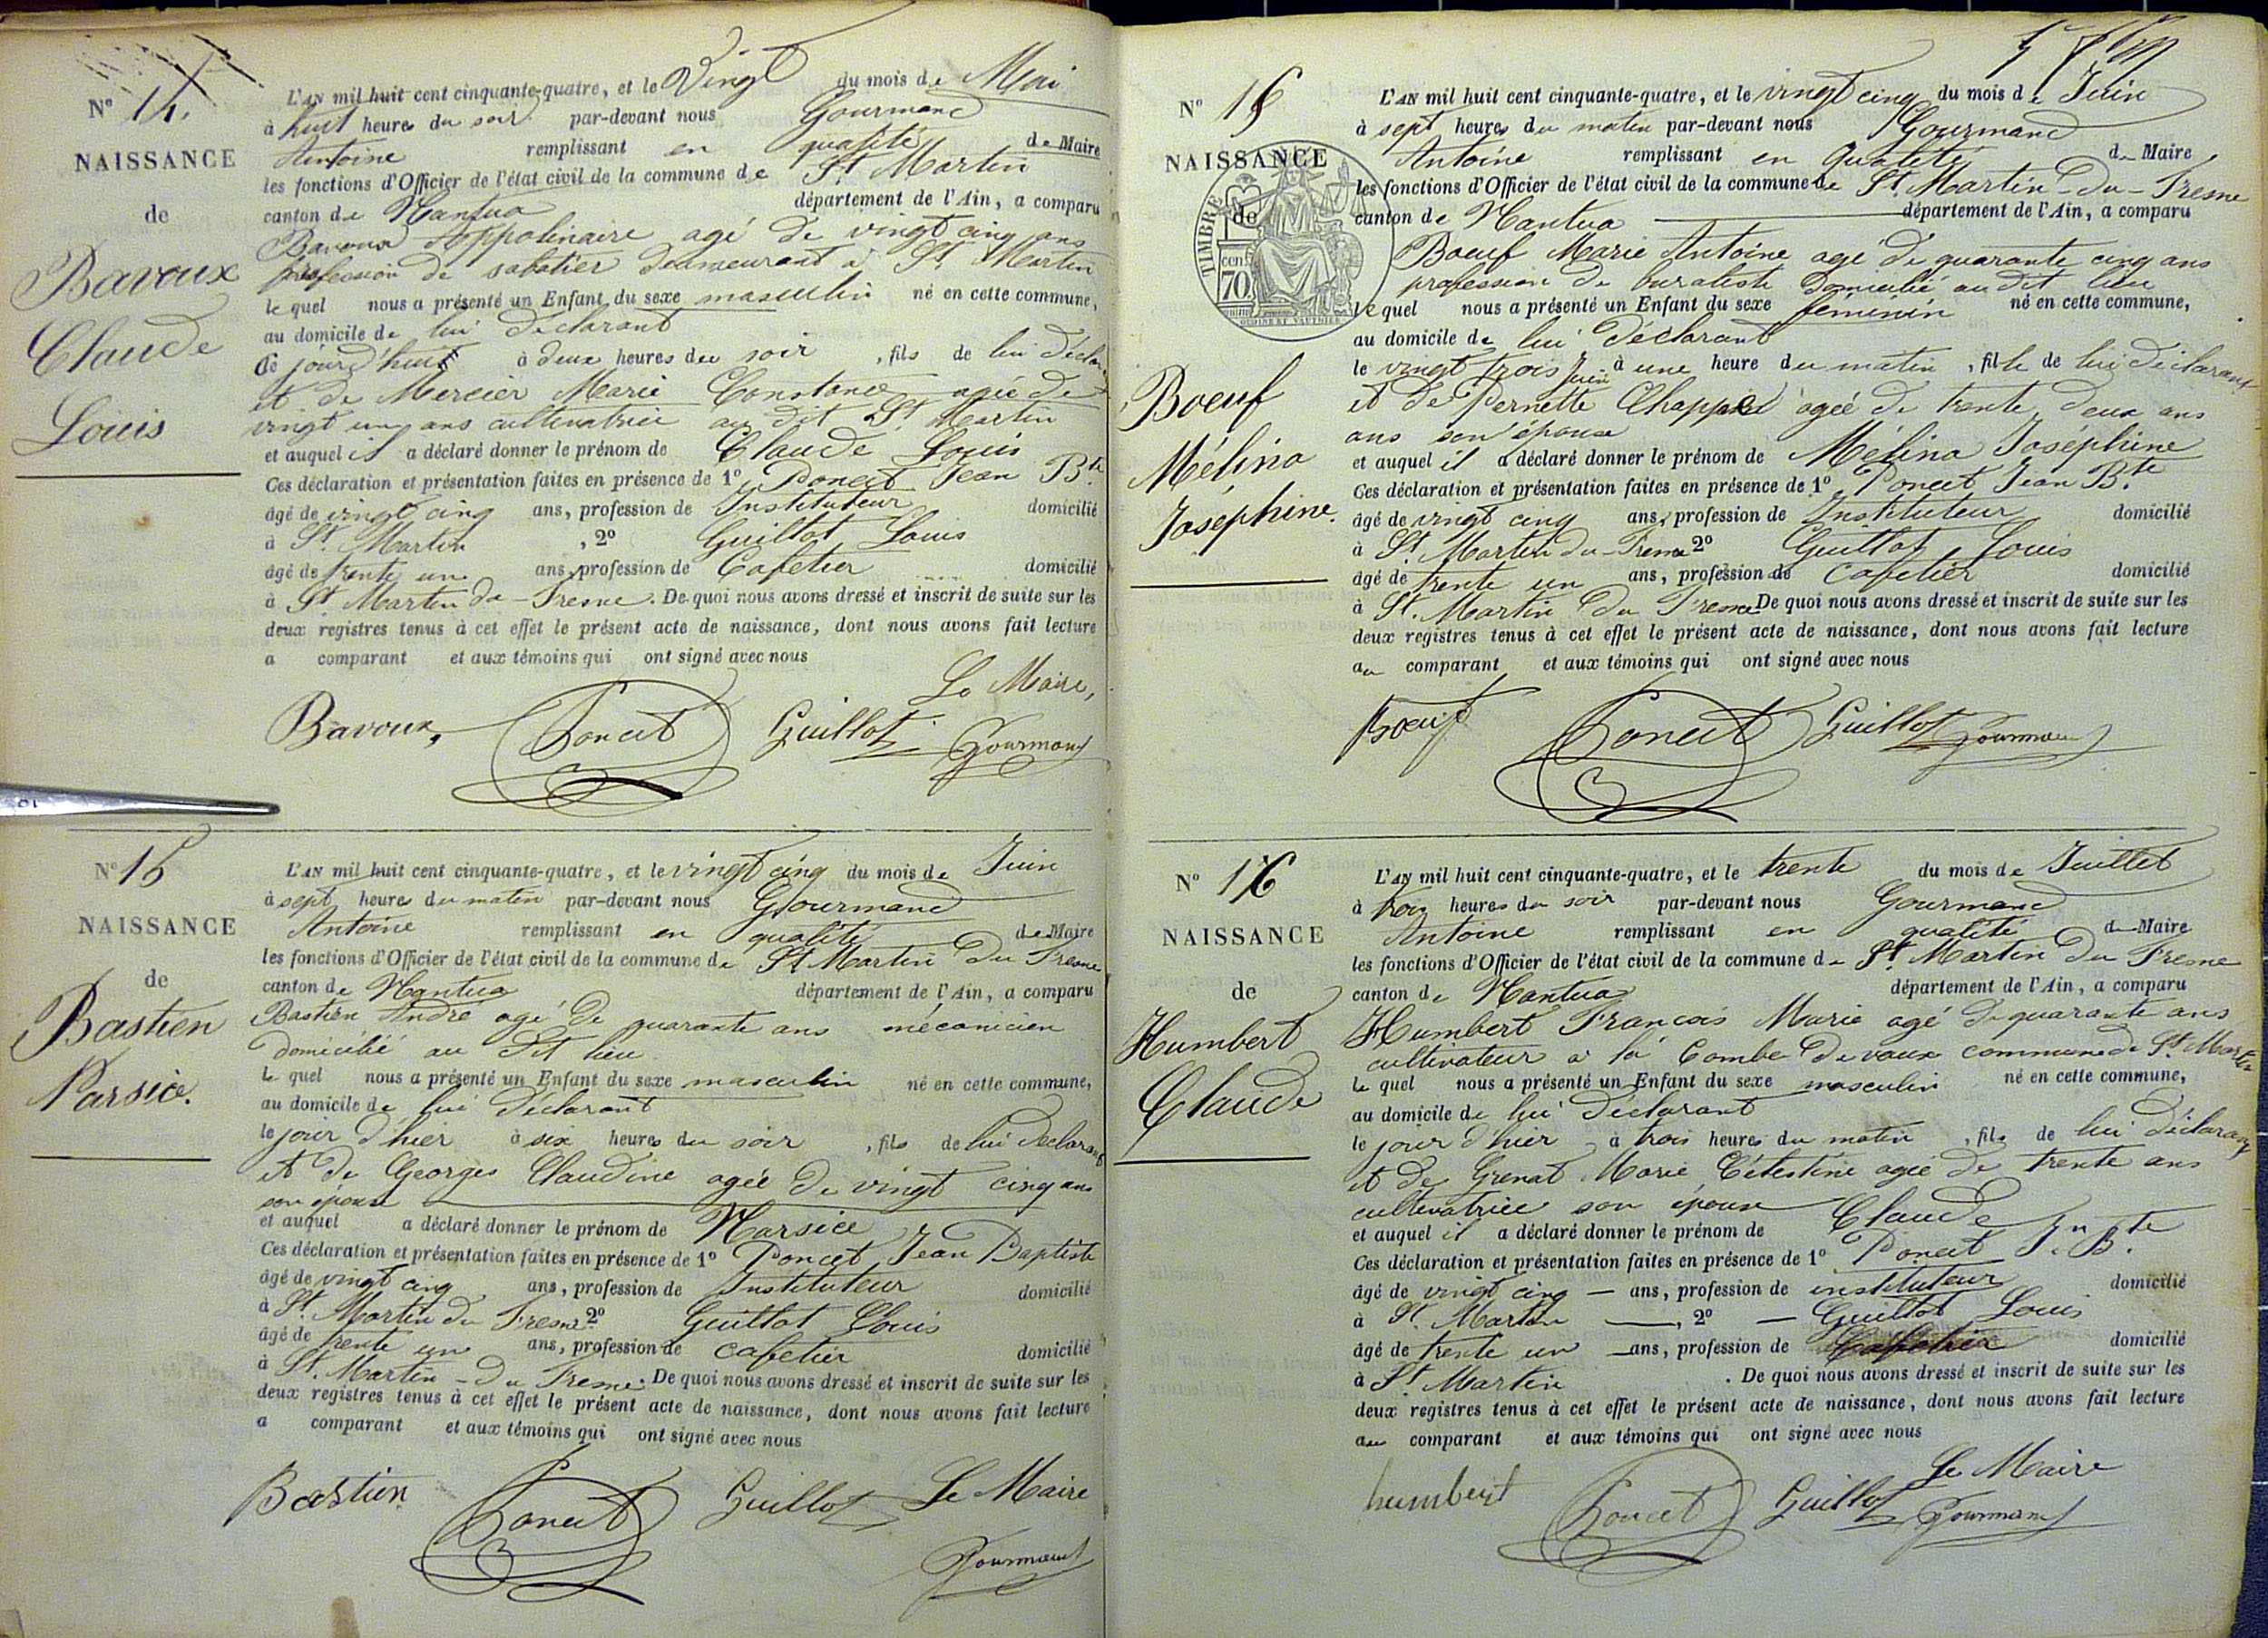 N° 14.
NAISSANCE
de
Bavoux
Claude
Louis
L'AN mil huit cent cinquante-quatre, et le Vingt du mois de Mai
à huit heures du soir par-devant nous Gourmand
Antoine remplissant en qualité de Maire
les fonctions d'Officier de l'état civil de la commune de St Martin
canton de Nantua département de l'Ain, a comparu
Bavoux Appolinaire agé de vingt cinq ans
profession de sabatier demeurant à St Martin
le quel nous a présenté un Enfant du sexe masculin né en cette commune,
au domicile de lui déclarant
Ce jourd'huit à deux heures du soir, fils de lui déclar
et de Mercier Marie Constance agée de
vingt un ans cultivatrice au dit St Martin
et auquel il a déclaré donner le prénom de Claude Louis
Ces déclaration et présentation faites en présence de 1° Poncet Jean Bte
âgé de vingt cinq ans, profession de Instituteur domicilié
à St. Martin, 2° Guillot Louis
âgé de trente un ans, profession de Cafetier domicilié
à St Martin du-Fresne. De quoi nous avons dressé et inscrit de suite sur les
deux registres tenus à cet effet le présent acte de naissance, dont nous avons fait lecture
a comparant et aux témoins qui ont signé avec nous
Le Maire,
Bavoux, Poncet Guillot Gourmand
N° 15
NAISSANCE
de
Bastien
Narsice.
L'AN mil huit cent cinquante-quatre, et le vingt cinq du mois de Juin
à sept heures du matin par-devant nous Gourmand
Antoine remplissant en qualité de Maire
les fonctions d'Officier de l'état civil de la commune de St Martin Du Fresne
canton de Nantua département de l'Ain, a comparu
Bastien André agé de quarante ans mécanicien
domicilié au dit lieu
le quel nous a présenté un Enfant du sexe masculin né en cette commune,
au domicile de lui déclarant
le jour d'hier à six heures du soir, fils de lui déclarant
et de Georges Claudine agée de vingt cinq ans
son épouse
et auquel a déclaré donner le prénom de Narsice
Ces déclaration et présentation faites en présence de 1° Poncet Jean Baptiste
âgé de vingt cinq ans, profession de Instituteur domicilié
à St. Martin du Fresne 2° Guillot Louis
âgé de trente un ans, profession de cafetier domicilié
à St. Martin-Du Fresne. De quoi nous avons dressé et inscrit de suite sur les
deux registres tenus à cet effet le présent acte de naissance, dont nous avons fait lecture
a comparant et aux témoins qui ont signé avec nous
Bastien Poncet Guillot Le Maire
Gourmand
N° 16
NAISSANCE
de
TIMBRE
cent.
70
Boeuf
Mélina
Joséphine.
L'AN mil huit cent cinquante-quatre, et le vingt cinq du mois de Juin
à sept heures du matin par-devant nous Gourmand
Antoine remplissant en Qualité de Maire
les fonctions d'Officier de l'état civil de la commune de St. Martin-Du-Fresne
canton de Nantua département de l'Ain, a comparu
Boeuf Marie Antoine agé de quarante cinq ans
profession de buraliste domicilié au dit lieu
le quel nous a présenté un Enfant du sexe féminin né en cette commune,
au domicile de lui déclarant
le vingt trois Juin à une heure du matin, fille de lui déclarant
et de Pernette Chappel agée de trente deux ans
ans son épouse
et auquel il a déclaré donner le prénom de Mélina Joséphine
Ces déclaration et présentation faites en présence de 1° Poncet Jean Bte
âgé de vingt cinq ans, profession de Instituteur domicilié
à St Martin du-Fresne 2° Guillot Louis
âgé de trente un ans, profession de cafetier domicilié
à St. Martin Du Fresne De quoi nous avons dressé et inscrit de suite sur les
deux registres tenus à cet effet le présent acte de naissance, dont nous avons fait lecture
au comparant et aux témoins qui ont signé avec nous
Boeuf Poncet Guillot Gourmand
N° 16
NAISSANCE
de
Humbert
Claude
L'AN mil huit cent cinquante-quatre, et le trente du mois de Juillet
à trois heures du soir par-devant nous Gourmand
Antoine remplissant en qualité de Maire
les fonctions d'Officier de l'état civil de la commune de St. Martin Du Fresne
canton de Nantua département de l'Ain, a comparu
Humbert François Marie agé de quarante ans
cultivateur à la Combe Devaux commune de St Martin
le quel nous a présenté un Enfant du sexe masculin né en cette commune,
au domicile de lui déclarant
le jour d'hier à trois heures du matin, fils de lui déclarant
et de Grenat Marie Célestine agée de trente ans
cultivatrice son épouse
et auquel il a déclaré donner le prénom de Claude
Ces déclaration et présentation faites en présence de 1° Poncet Jn Bte
âgé de vingt cinq — ans, profession de instituteur domicilié
à St. Martin —, 2° — Guillot Louis
âgé de trente un — ans, profession de Cafetier domicilié
à St. Martin. De quoi nous avons dressé et inscrit de suite sur les
deux registres tenus à cet effet le présent acte de naissance, dont nous avons fait lecture
au comparant et aux témoins qui ont signé avec nous
Le Maire
humbert Poncet Guillot Gourmand